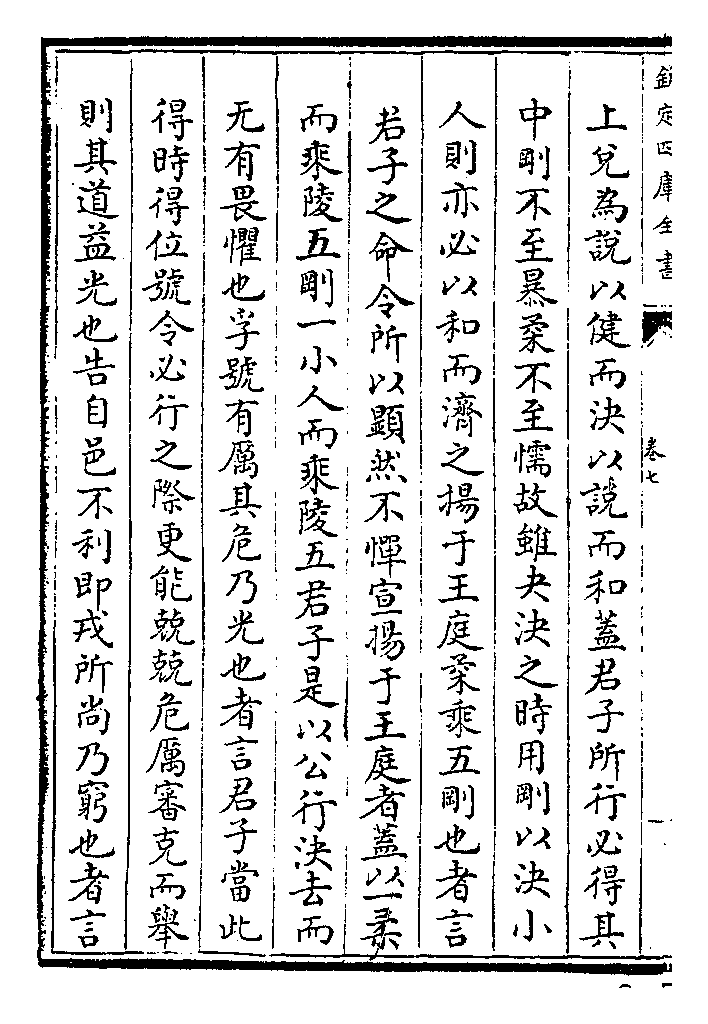 欽定四庫全書
卷七
上兌為說以健而決以說而和蓋君子所行必得其
中剛不至暴柔不至懦故雖夬決之時用剛以決小
人則亦必以和而濟之揚于王庭柔乘五剛也者言
君子之命令所以顯然不憚宣揚于王庭者蓋以一柔
而乘陵五剛一小人而乘陵五君子是以公行決去而
无有畏懼也孚號有厲其危乃光也者言君子當此
得時得位號令必行之際更能兢兢危厲審克而舉
則其道益光也告自邑不利即戎所尚乃窮也者言